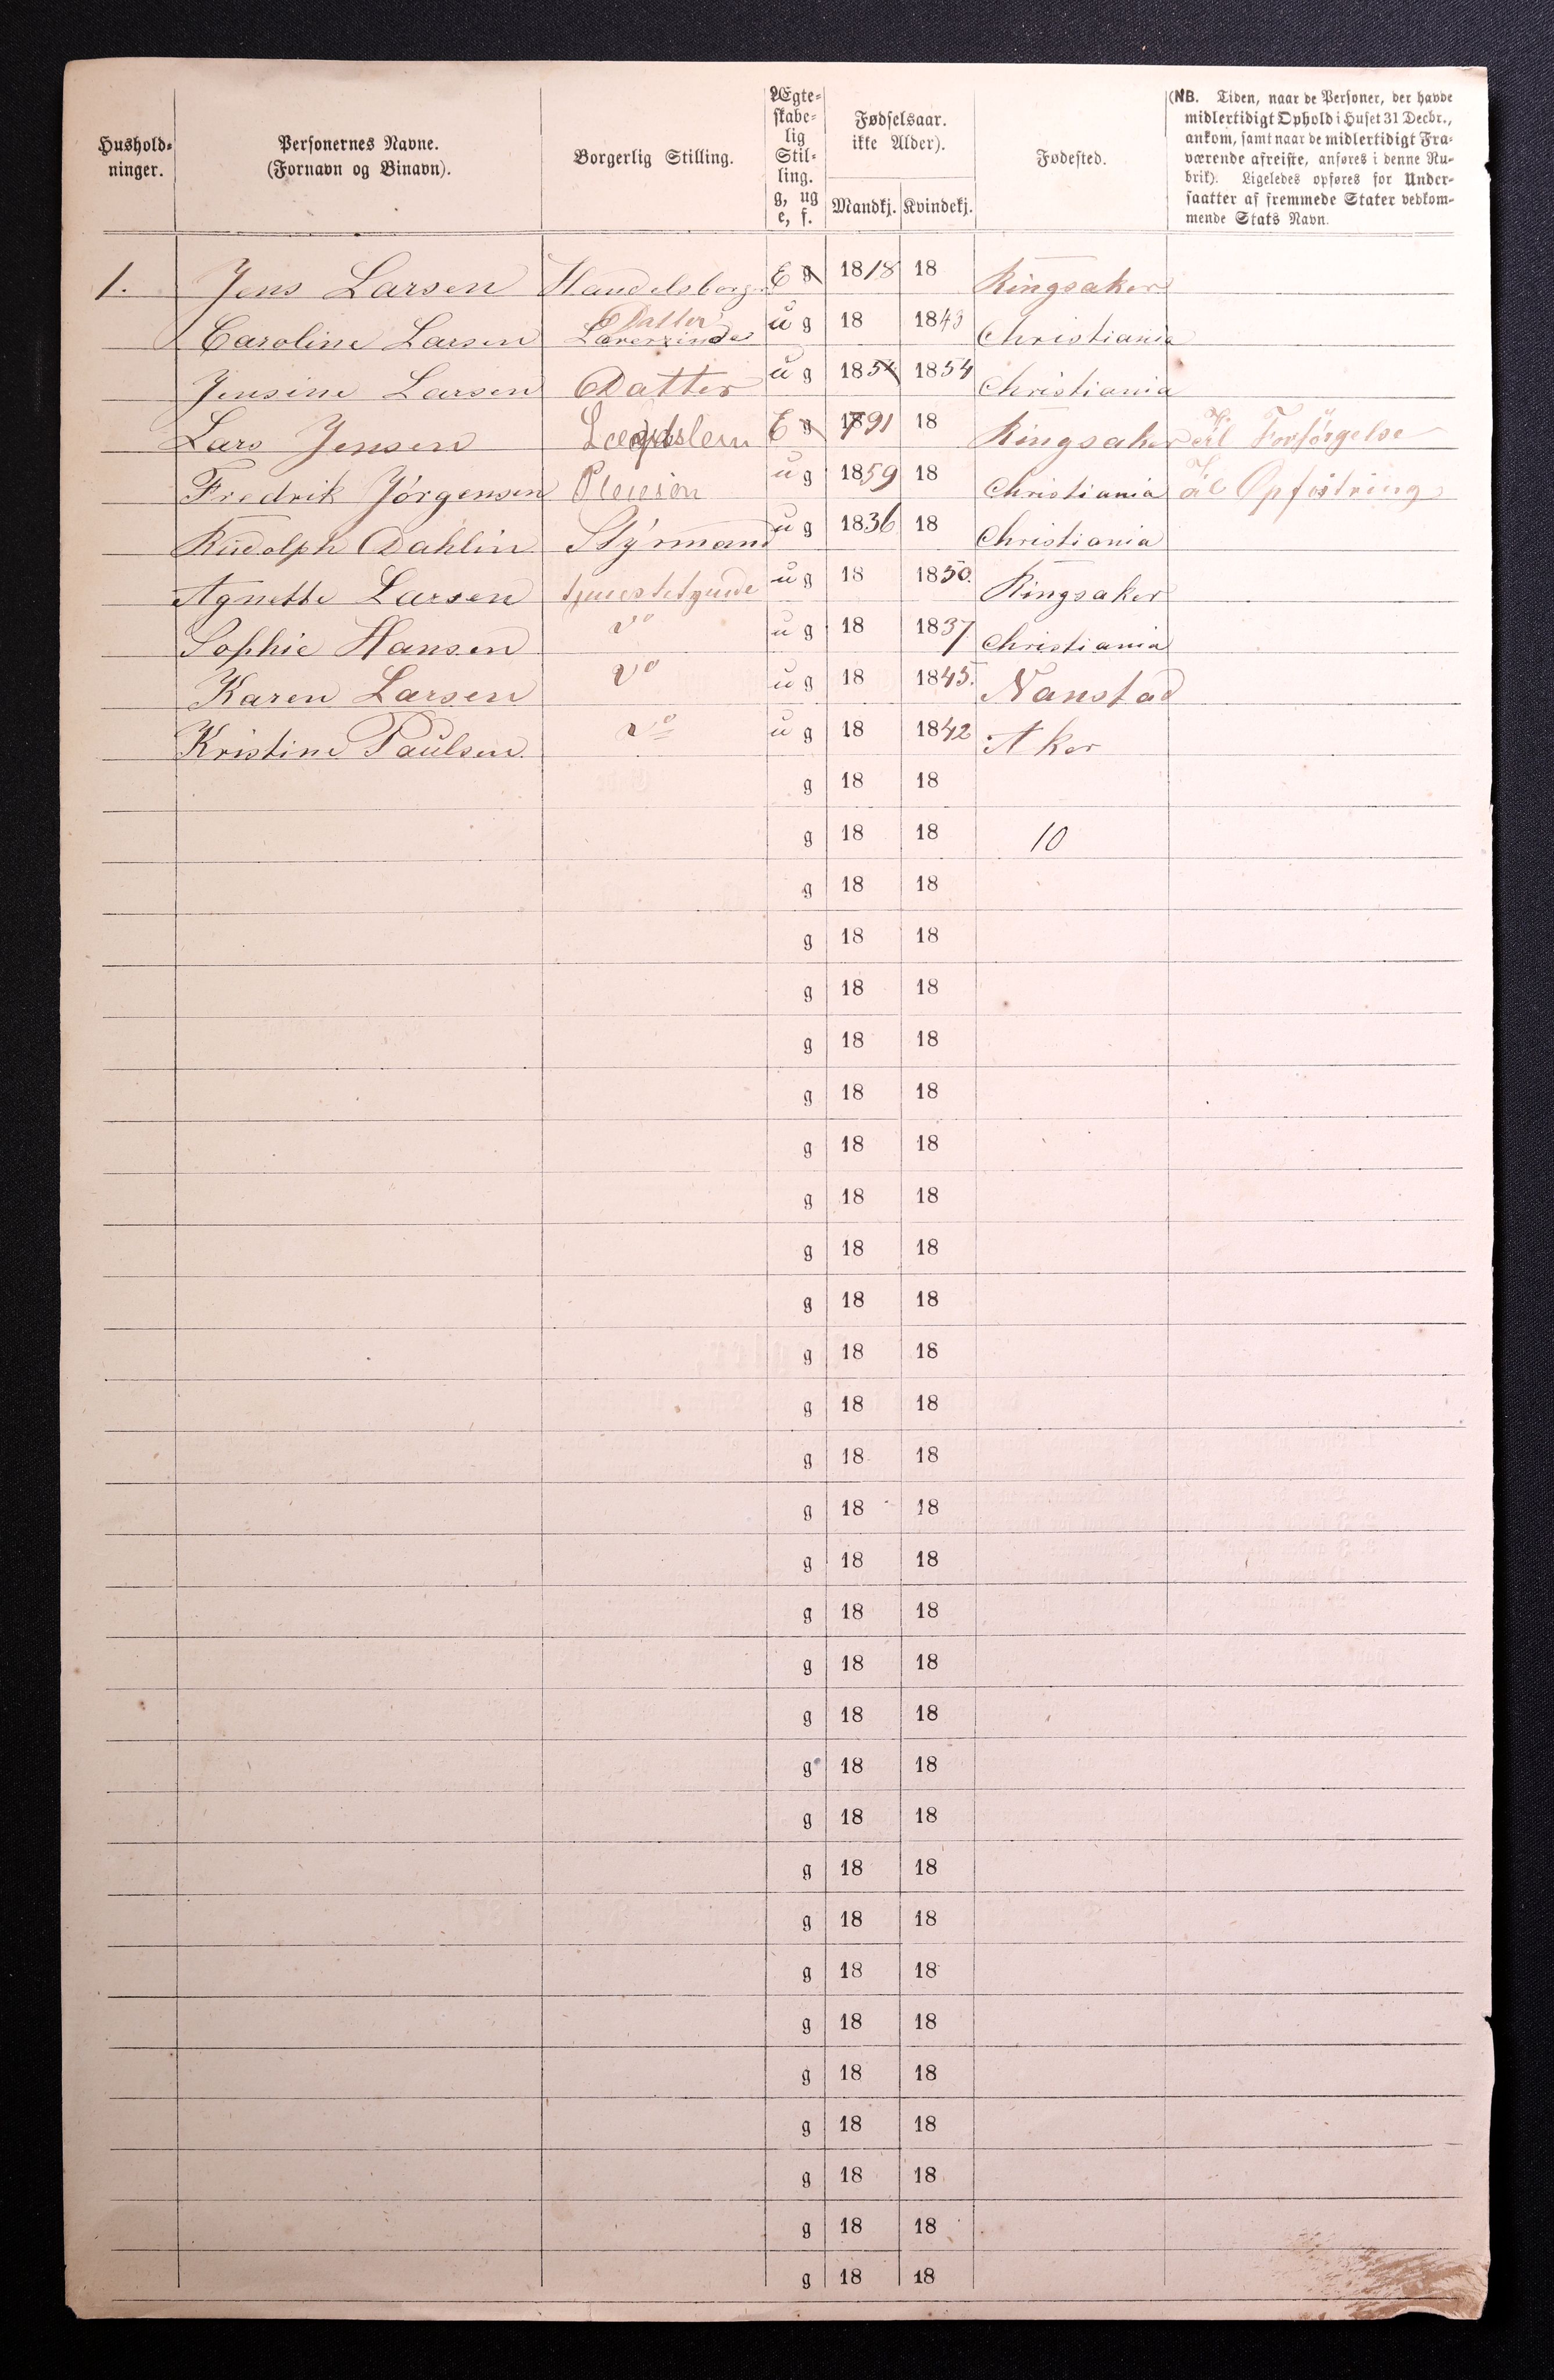 Hushold-
ninger.
Personernes Navne.
(Fornavn og Binavn).
Borgerlig Stilling.
Ægte-
skabe-
lig
Stil-
ling.
g, ug
e, f.
Fødselsaar.
ikke Alder).
Mandkj. Kvindekj.
Fødested.
(NB. Tiden, naar de Personer, der havde
midlertidigt Ophold i Huset 31 Decbr.,
ankom, samt naar de midlertidigt Fra-
værende afreiste, anføres i denne Ru-
brik). Ligeledes opføres for Under-
saatter af fremmede Stater vedkom-
mende Stats Navn.
1. Jens Larsen Handelsborg E g 1818 18 Ringsaker
Datter
Caroline Larsen Lærerinde u g 18 1843 Christiania
Jensine Larsen Datter u g 1854 1854 Christiania
Lars Jensen E g 1791 18 Ringsaker til Forsörgelse
Fredrik Jörgensen Pleiesön u g 1859 18 Christiania til Opfostring
Rudolph Dahlin Styrmand u g 1836 18 Christiania
Agnethe Larsen tjenestepige u g 18 1850. Ringsaker
Sophie Hansen do u g 18 1837 Christiania
Karen Larsen do u g 18 1845. Nanstad
Kristine Paulsen do u g 18 1842 Aker
g 18 18
g 18 18 10
g 18 18
g 18 18
g 18 18
g 18 18
g 18 18
g 18 18
g 18 18
g 18 18
g 18 18
g 18 18
g 18 18
g 18 18
g 18 18
g 18 18
g 18 18
g 18 18
g 18 18
g 18 18
g 18 18
g 18 18
g 18 18
g 18 18
g 18 18
g 18 18
g 18 18
g 18 18
g 18 18
g 18 18